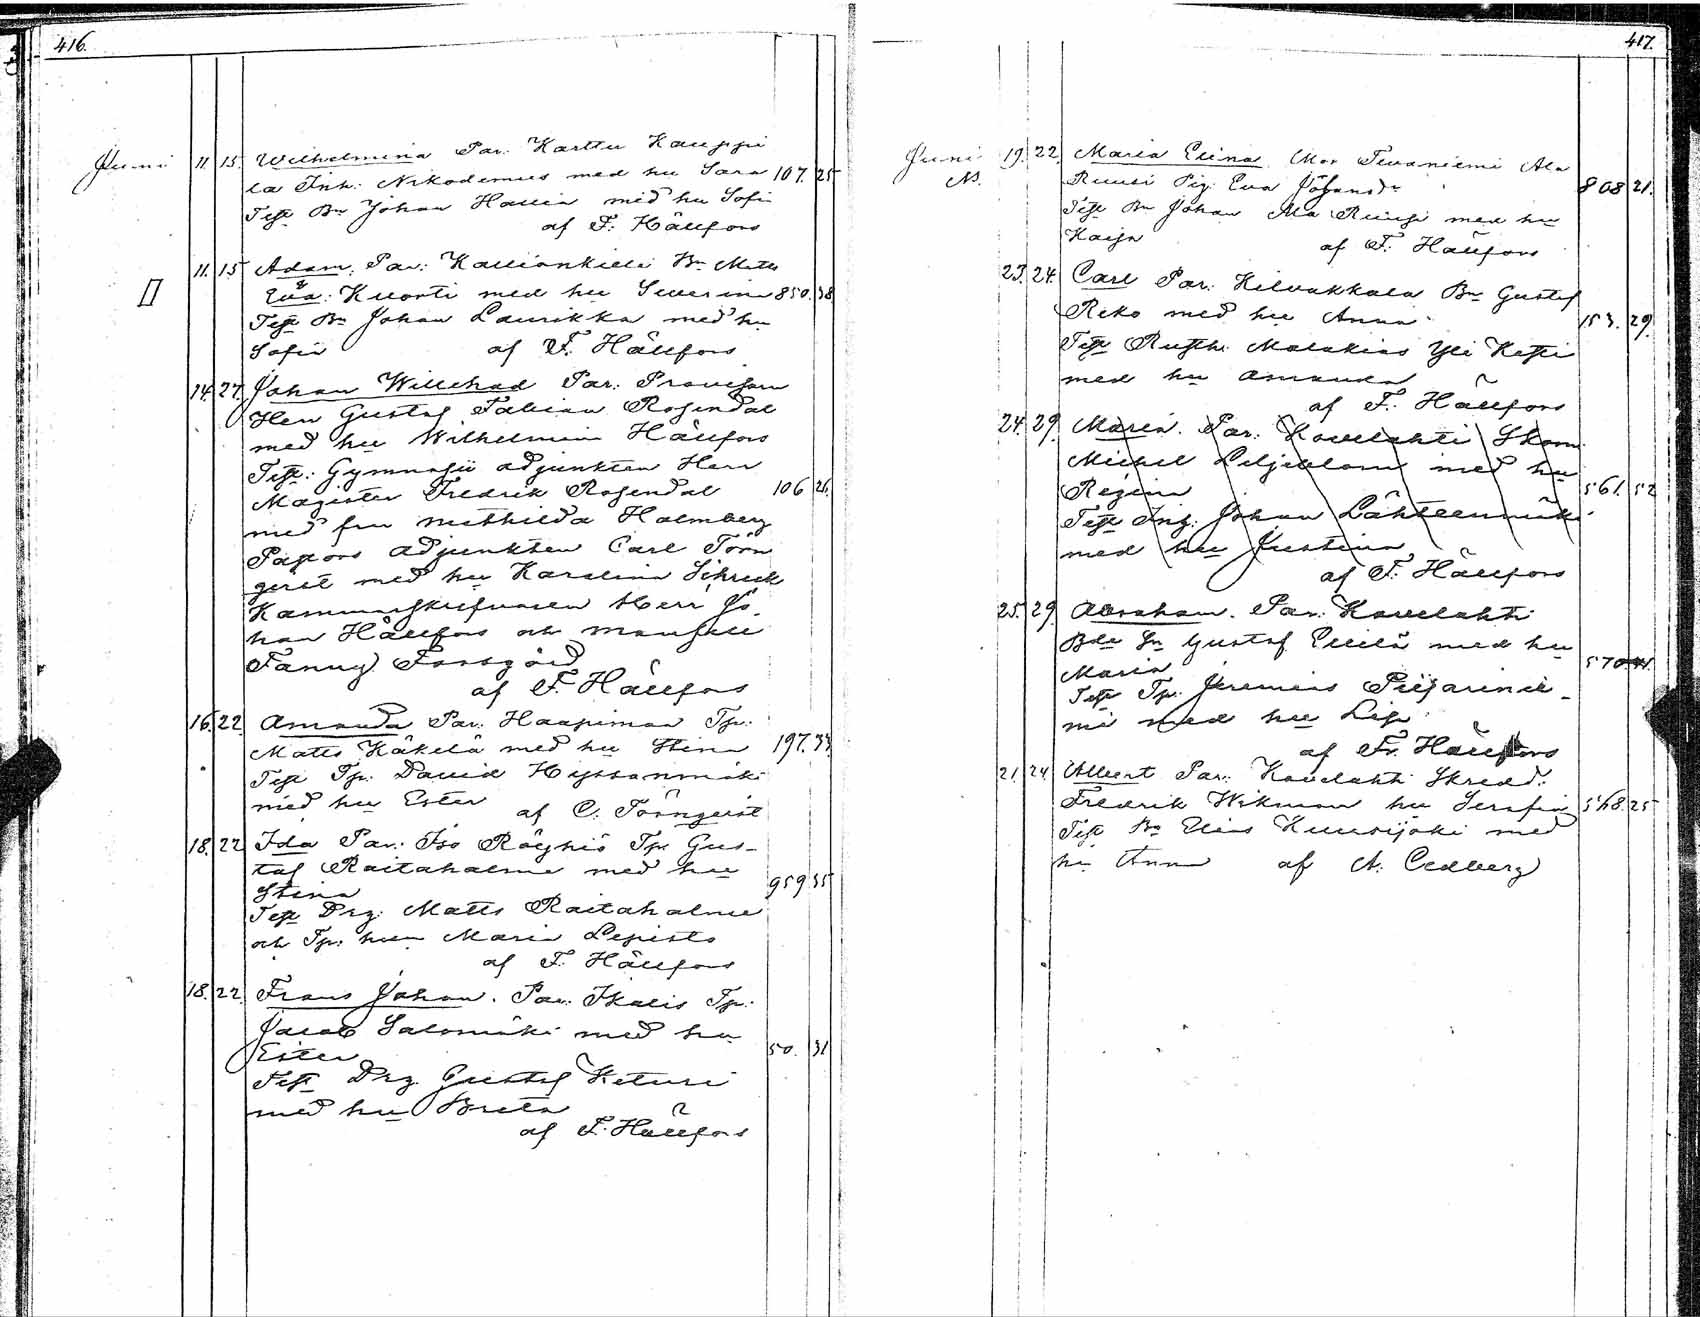 416.
Juni 11. 15. Wilhelmina Par. Karttu Kauppi
la Inh. Nikodemus med hu Sara 107. 25
Test Bn Johan Hallia med hu Sofi
af F. Hällfors
11. 15 Adam, Par: Kallionkieli Bn Matts
Eva: Kuonti med hu Severina 850. 38
Test Bn Johan Laurikka med hu
Sofia af F. Hällfors
14. 27. Johan Willehad Par: Provisorn
Herr Gustaf Fabian Rosendal
med hu Wilhelmina Hällfors
Test: Gymnasii adjunkten Herr
Magister Fredrik Rosendal 106 26.
med fru Mathilda Holmberg
Pastors adjunkten Carl Törn
qvist med hu Karolina Schreck
Kammarskrifvaren Herr Jo
han Hållfors och Mamsell
Fanny Forsgård
af F. Hällfors
16. 22 Amanda Par: Haapimaa Tp.
Matts Käkelä med hu Stina 197. 33
Test Tp. David Hyssänmäki
med hu Ester af C. Törnqvist
18. 22 Ida Par: Iso Röyhiö Tp. Gus-
taf Raitahalme med hu
Stina 959 35
Test Drg: Matts Raitahalme
och Tp. hun Maria Lepistö
af F. Hällfors
18. 22. Frans Johan. Par: Ikalis Tp.
Jacob Salomäki med hu
Ester 50. 31
Test Drg. Gustaf Keturi
med hu Breta
af F. Hällfors
417.
Juni 19. 22. Maria Elina Mor Tevaniemi Ala
N. Ruusi Pig. Eva Johansdr 808 21.
Test Bn Johan Ala Ruusi med hu
Kaisa af F. Hällfors
23. 24. Carl Par: Kilvakkala Bn Gustaf
Reko med hu Anna 153. 29.
Test Rusth. Malakias Yli Kesti
med hu Amanda
af F. Hällfors
24. 29. Maria. Par: Kovelahti Skom.
Michel Liljeblom med hu
Regina 561. 52
Test Inh. Johan Lähteenmäki
med hu Justina
af F. Hällfors
25. 29. Abraham. Par: Kovelahti
Bde Sn Gustaf Eerilä med hu
Maria 570. 41.
Test Tp. Jeremias Piijarinie-
mi med hu Lisa
af Fr. Hällfors
21. 24 Albert Par: Kovelahti Skredd:
Fredrik Wikman hu Serafia 568. 25
Test Bn Elias Kuusijoki med
hu Anna af A. Cedberg